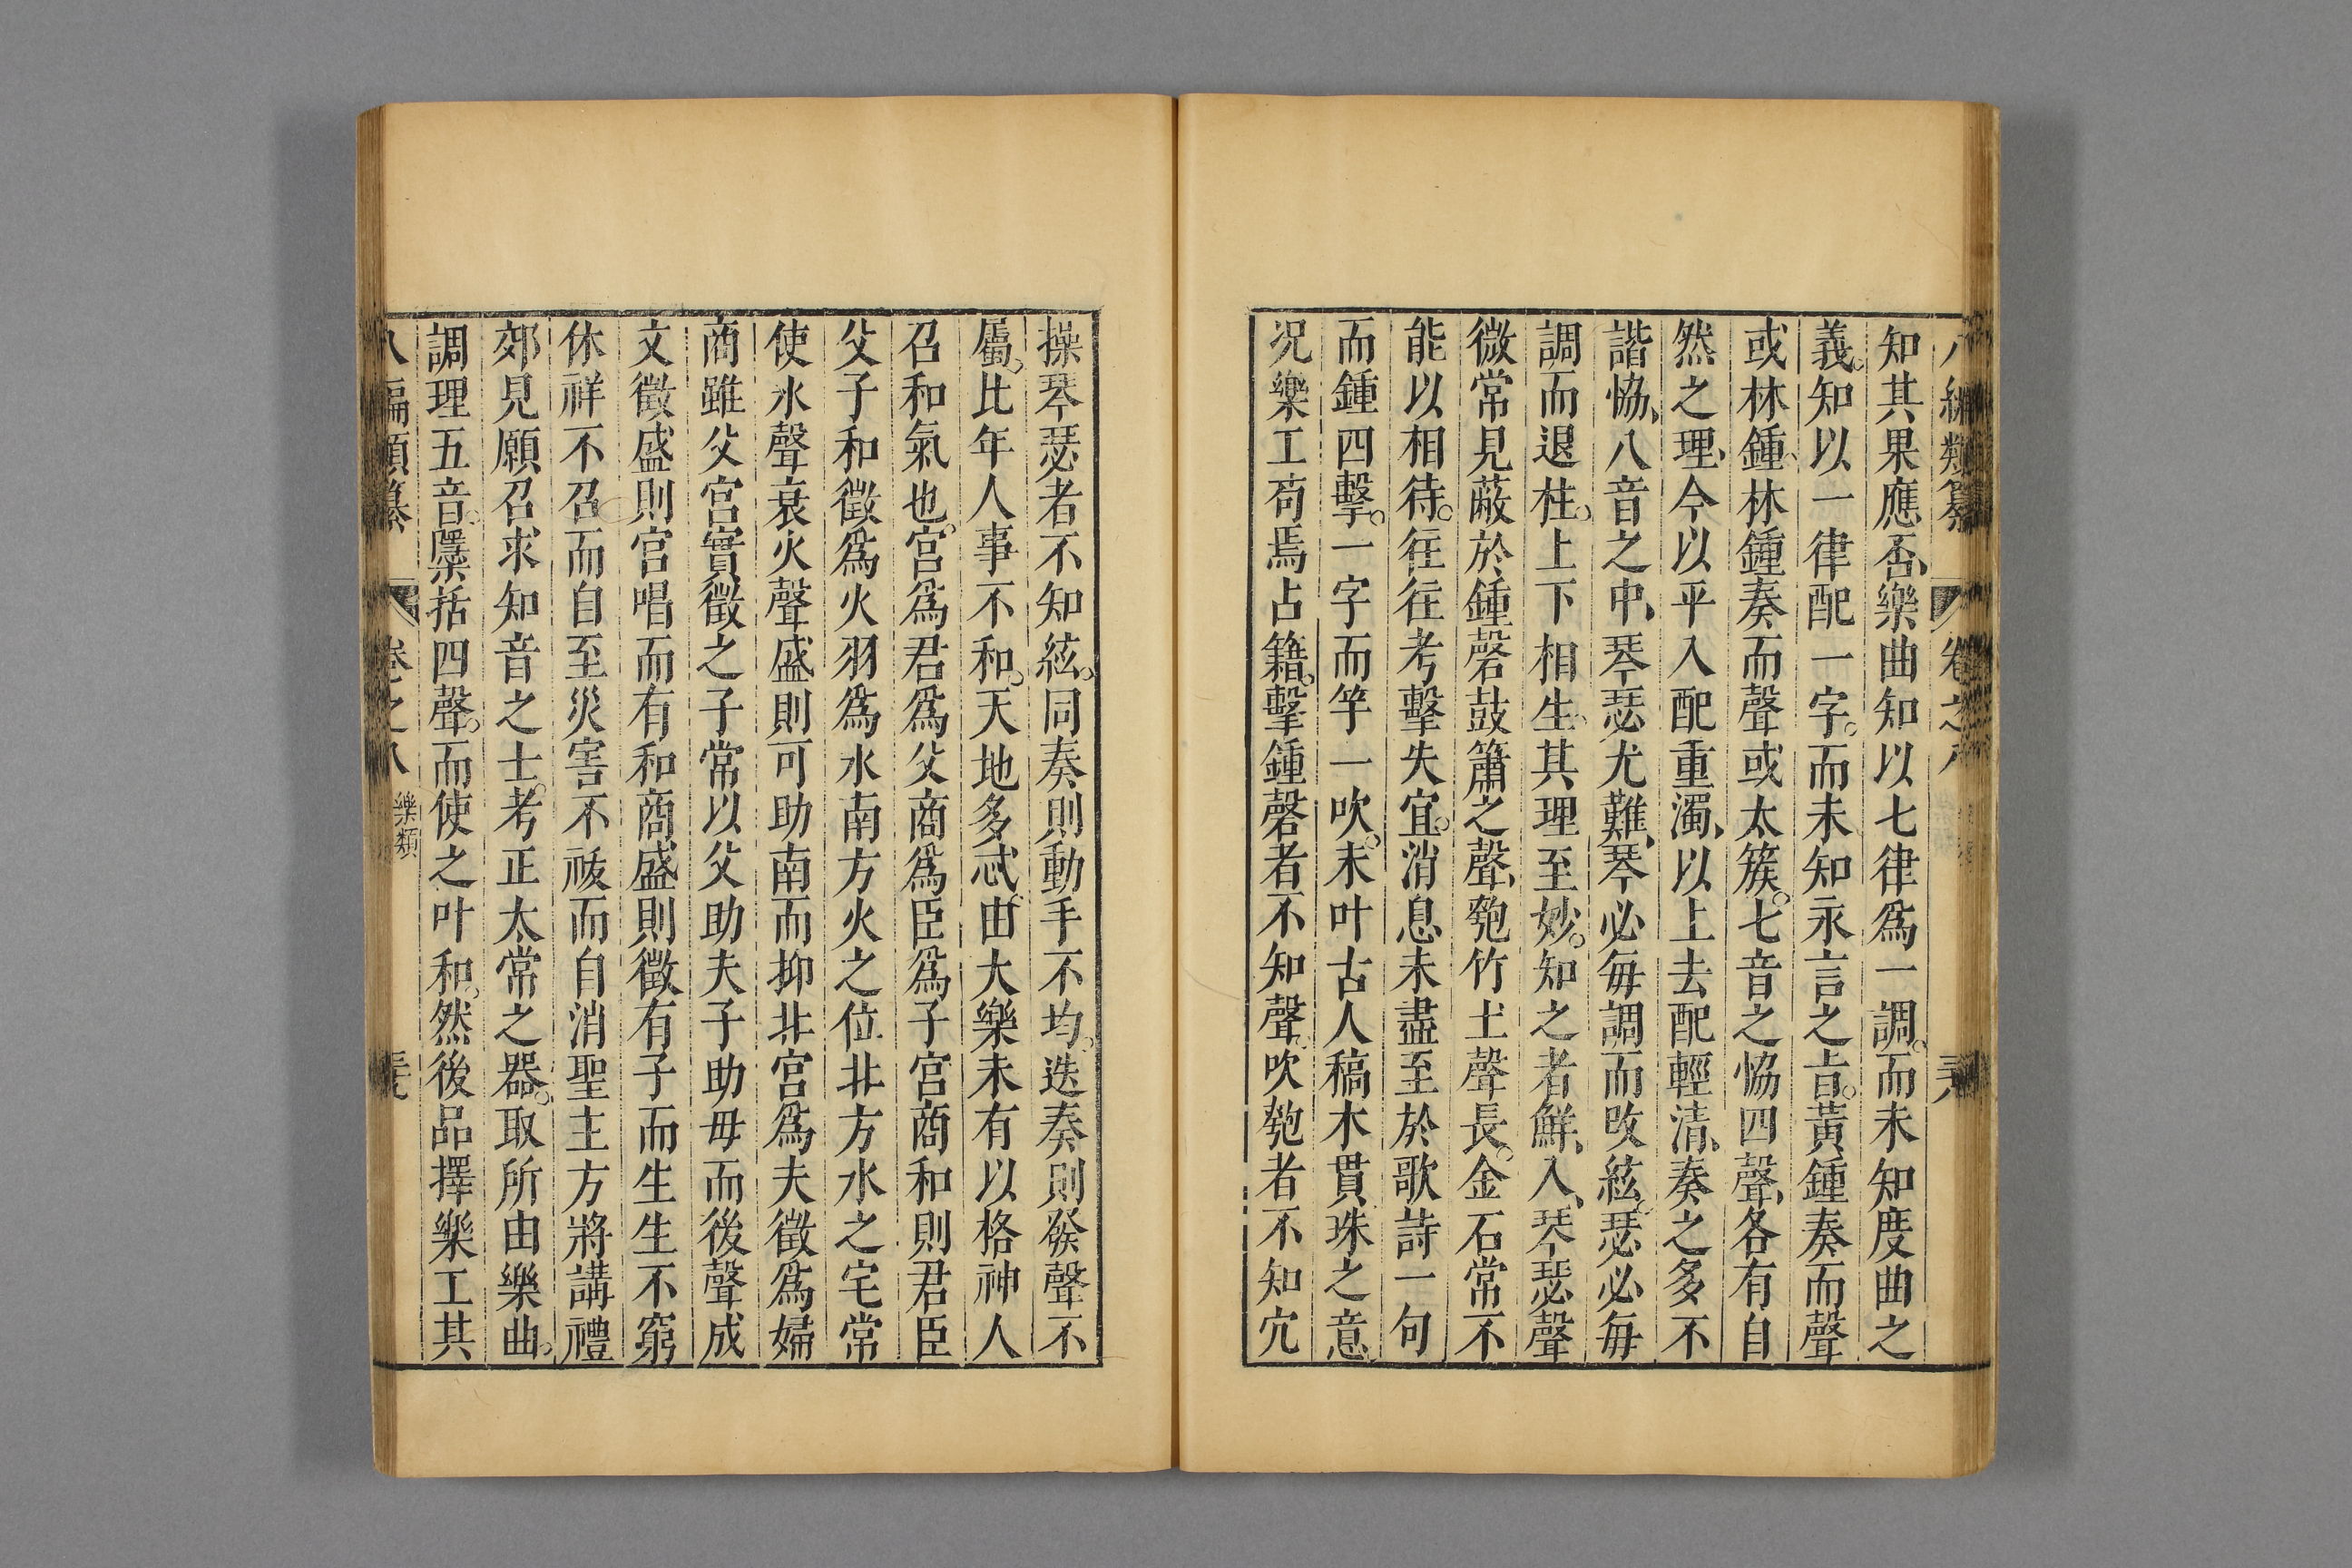 八編類纂 卷之八 三六
知其果應否樂曲知以七律爲一調而未知度曲之
義知以一律配一字而未知永言之旨黃鍾奏而聲
或林鍾林鍾奏而聲或太簇七音之恊四聲各有自
然之理今以平入配重濁以上去配輕清奏之多不
諧恊八音之中琴瑟尤難琴必每調而改絃瑟必每
調而退柱上下相生其理至妙知之者鮮入琴瑟聲
微常見蔽於鍾磬鼓簫之聲匏竹土聲長金石常不
能以相待往往考擊失宜消息未盡至於歌詩一句
而鍾四擊一字而竽一吹未叶古人稿木貫珠之意
况樂工苟焉占籍擊鍾磬者不知聲吹匏者不知穴
操琴瑟者不知絃同奏則動手不均迭奏則發聲不
屬比年人事不和天地多忒由大樂未有以格神人
召和氣也宮爲君爲父商爲臣爲子宮商和則君臣
父子和徵爲火羽爲水南方火之位北方水之宅常
使水聲衰火聲盛則可助南而抑北宮爲夫徵爲婦
商雖父宮實徵之子常以父助夫子助母而後聲成
文徵盛則宮唱而有和商盛則徵有子而生生不窮
休祥不召而自至災害不祓而自消聖主方將講禮
郊見願召求知音之士考正太常之器取所由樂曲
調理五音檃括四聲而使之叶和然後品擇樂工其
八編類纂 卷之八 樂類